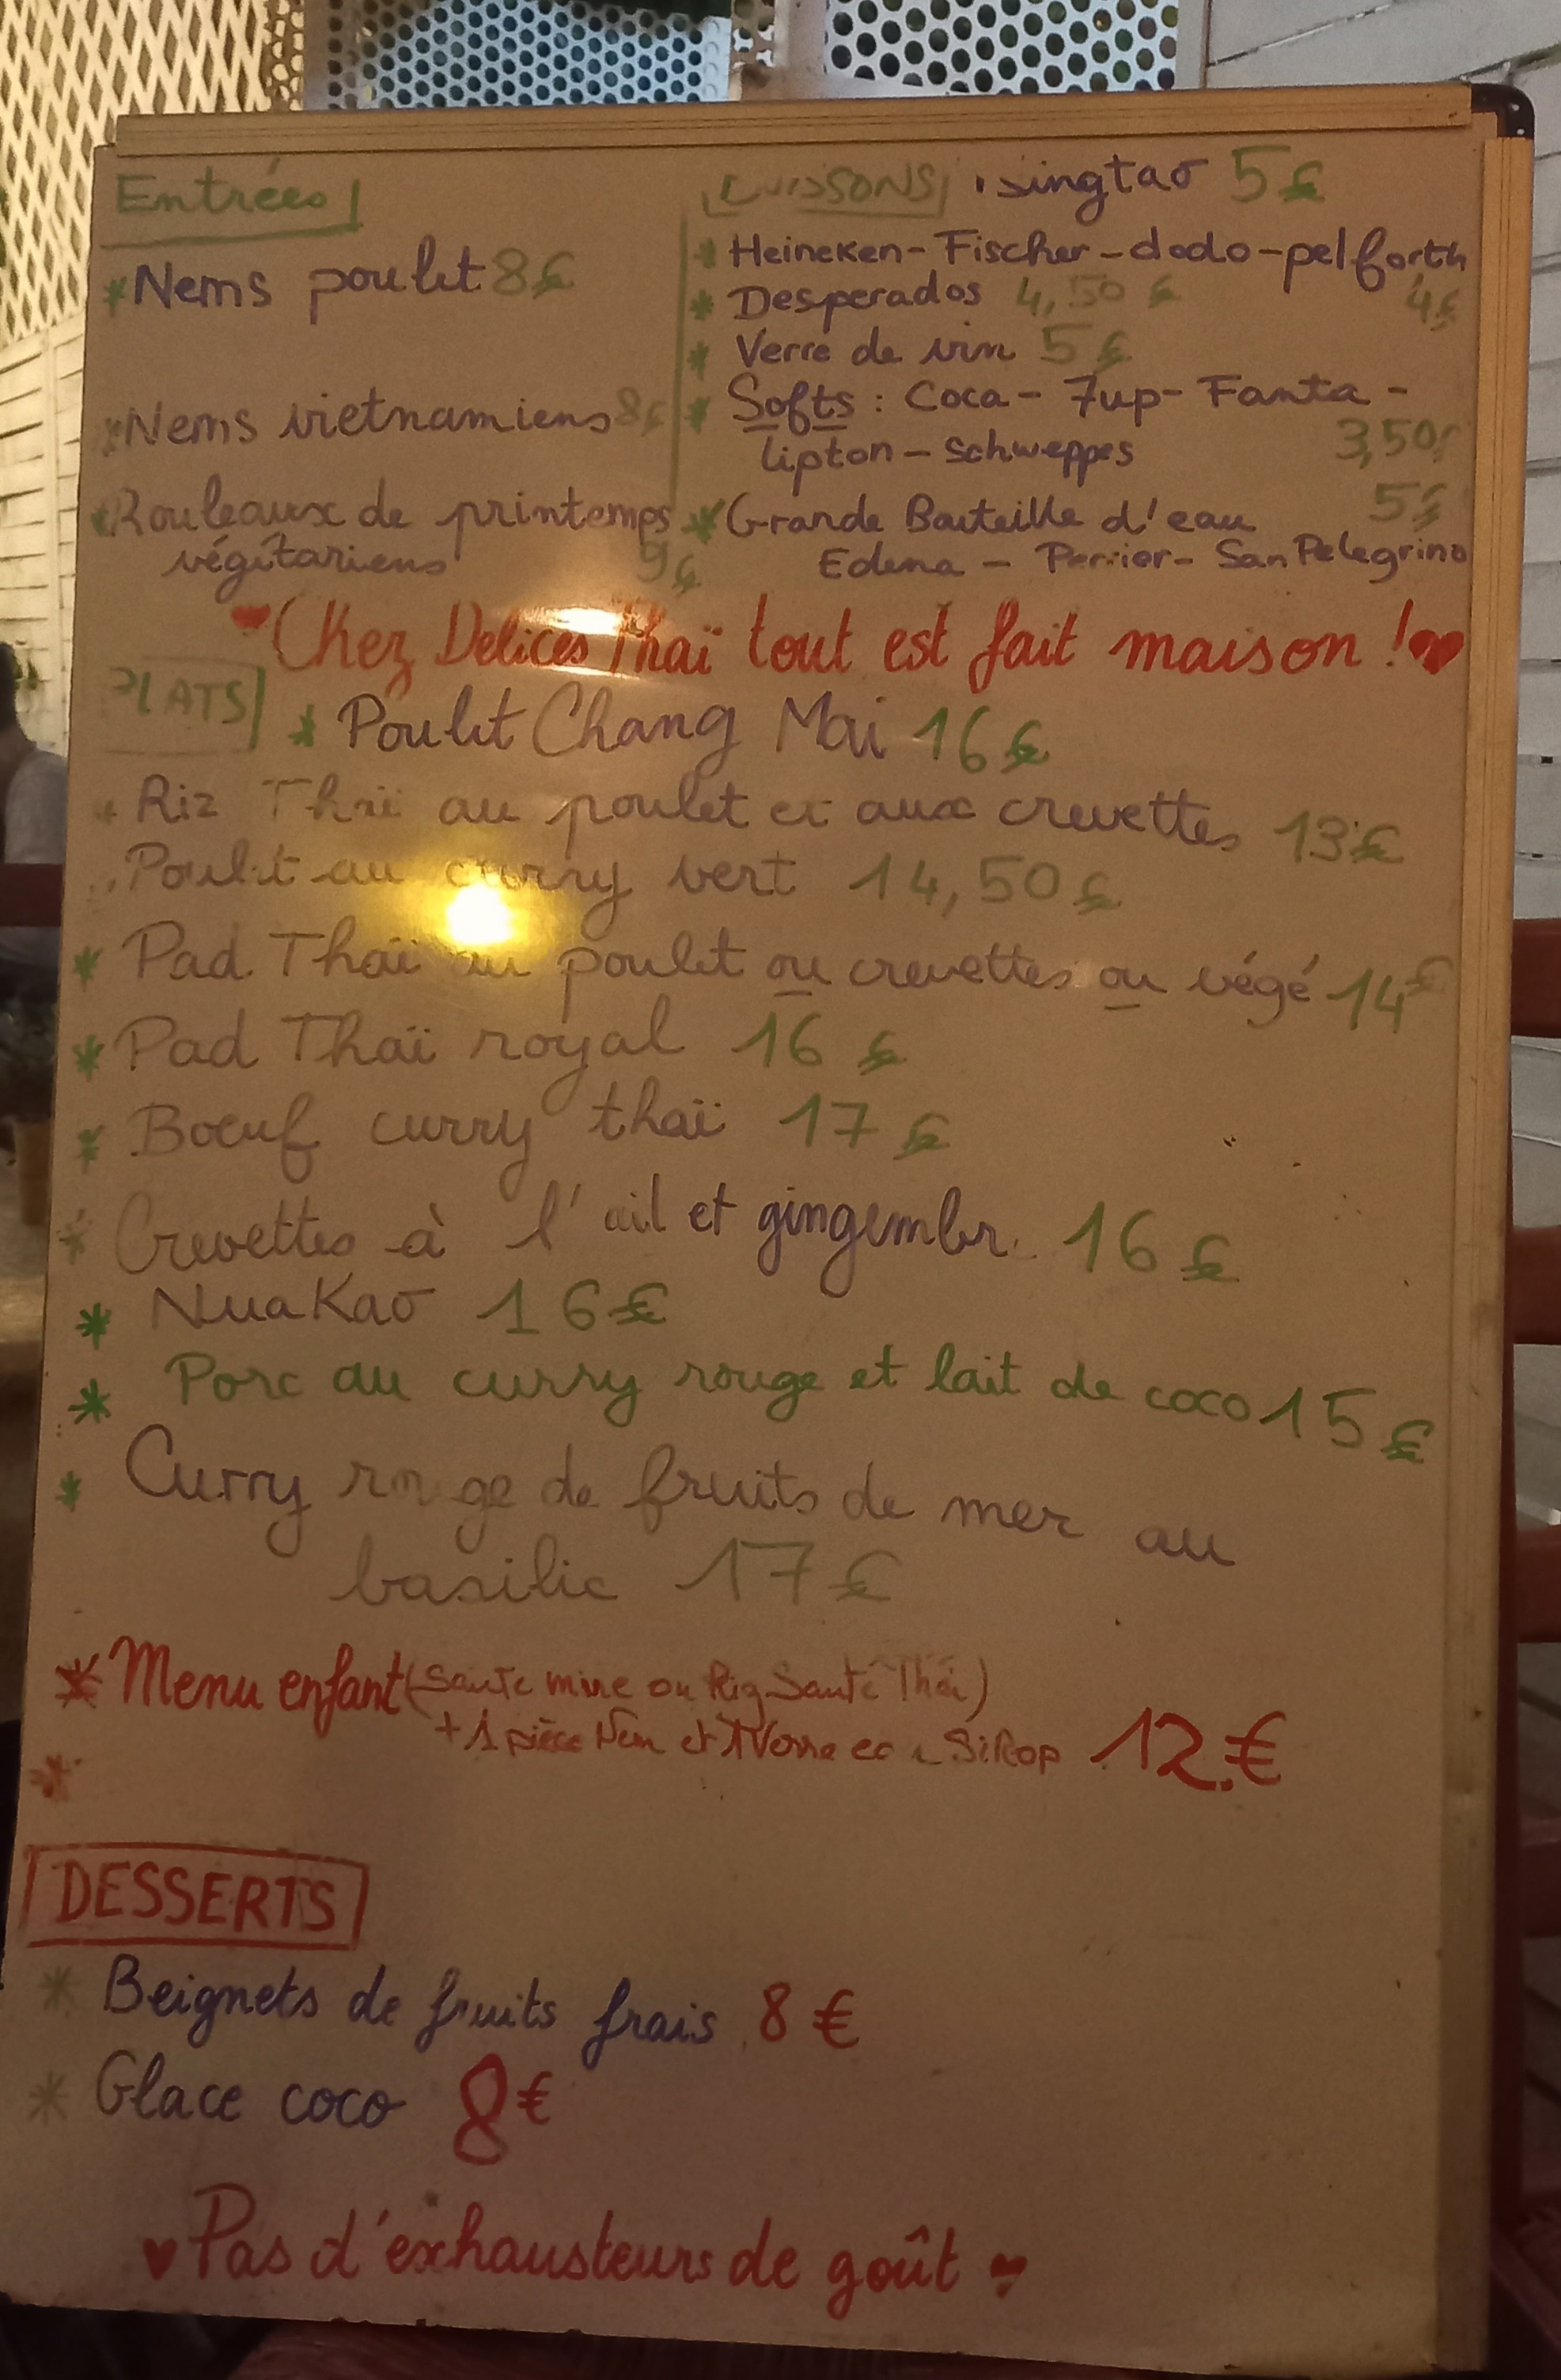 Entrées
*Nems poulet 8€
*Nems vietnamiens 8€
*Rouleaux de printemps
végétariens 9€
BOISSONS Tsingtao 5€
* Heineken - Fischer - dodo - pelforth
4€
* Desperados 4,50 €
* Verre de vin 5€
* Softs : Coca - 7up - Fanta -
Lipton - Schweppes 3,50€
* Grande Bouteille d'eau 5€
Edena - Perrier - San Pelegrino
♥ Chez Delices Thaï tout est fait maison ! ♥
PLATS
* Poulet Chang Mai 16€
* Riz Thaï au poulet et aux crevettes 13€
Poulet au curry vert 14,50€
* Pad Thaï au poulet ou crevettes ou végé 14€
* Pad Thaï royal 16 €
* Boeuf curry thaï 17 €
* Crevettes à l'ail et gingembr 16 €
* Nua Kao 16€
* Porc au curry rouge et lait de coco 15€
* Curry rouge de fruits de mer au
basilic 17€
* Menu enfant (Sauté mine ou Riz Sauté Thaï)
+ 1 pièce Nem et 1 Verre SiRop 12€
*
DESSERTS
* Beignets de fruits frais 8 €
* Glace coco 8€
♥ Pas d'exhausteurs de goût ♥